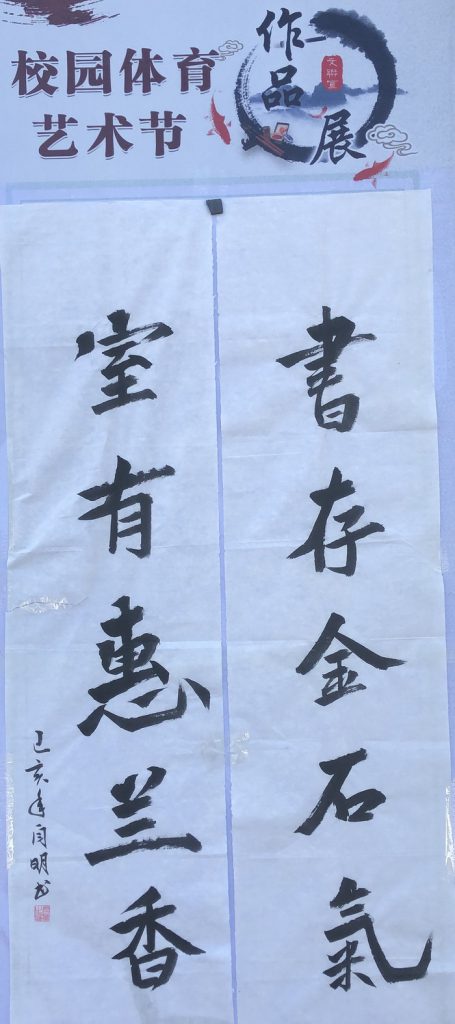 校园体育
艺术节
作品
展
書存金石氣
室有惠兰香
己亥年闫明书